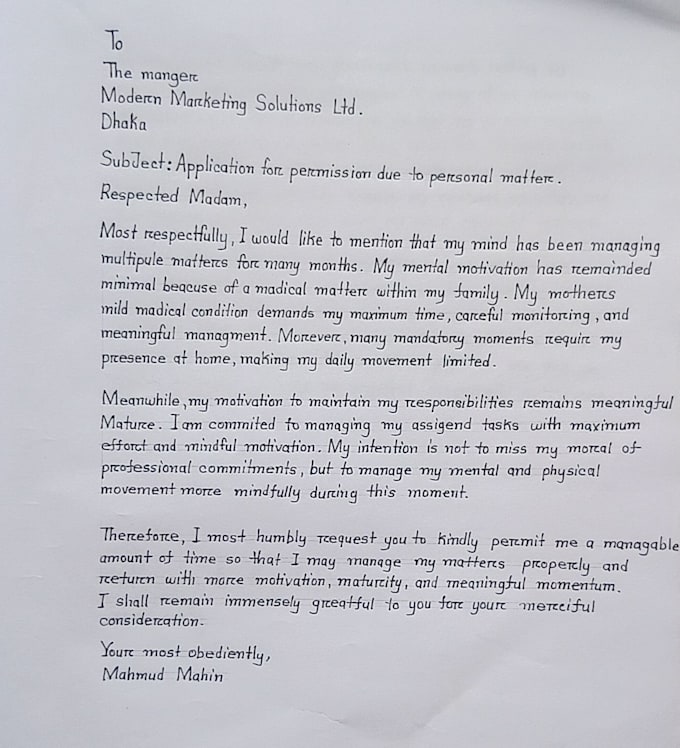 To
The manger
Modern Marketing Solutions Ltd.
Dhaka
SubJect: Application for permission due to personal matter.
Respected Madam,
Most respectfully, I would like to mention that my mind has been managing
multipule matters for many months. My mental motivation has remainded
minimal beqcuse of a madical matter within my family. My mothers
mild madical condition demands my maximum time, careful monitoring, and
meaningful managment. Morever, many mandatory moments requir my
presence at home, making my daily movement limited.
Meanwhile, my motivation to maintain my responsibilities remains meaningful
Mature. I am commited to managing my assigend tasks with maximum
effort and mindful motivation. My intention is not to miss my moral of
professional commitments, but to manage my mental and physical
movement more mindfully during this moment.
Therefore, I most humbly request you to kindly permit me a managable
amount of time so that I may manage my matters properly and
return with more motivation, maturity, and meaningful momentum.
I shall remain immensely greatful to you for your merciful
consideration.
Your most obediently,
Mahmud Mahin